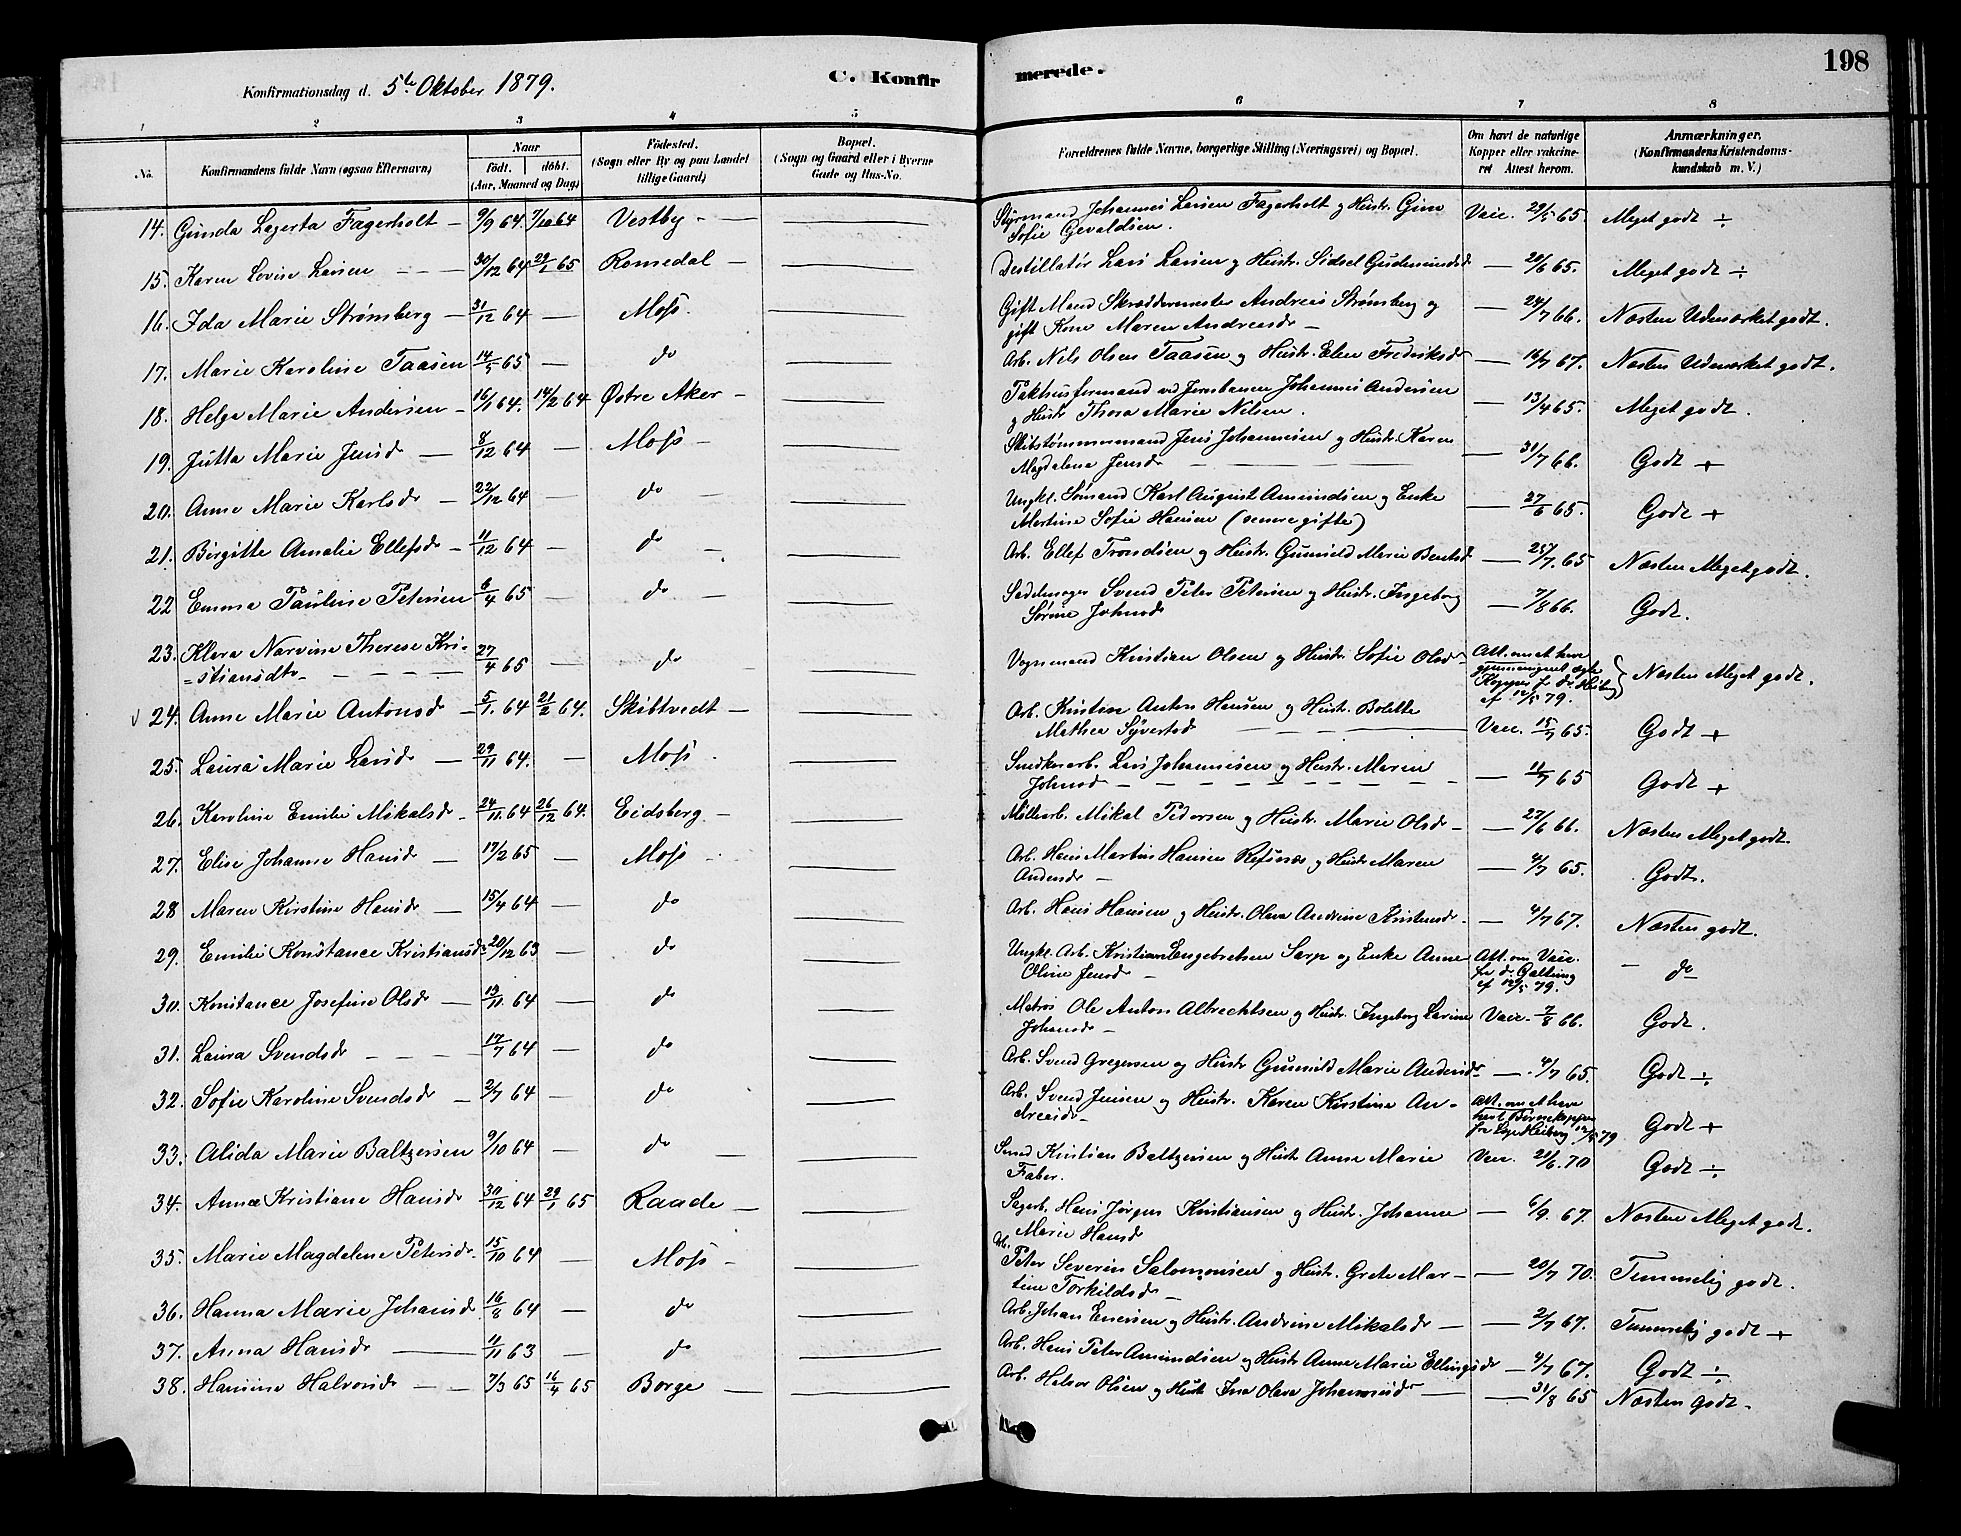 198
Konfirmationsdag d. 5te Oktober 1879.
C. Konfirmerede.
1 2 3 4 5 6 7 8
No. Konfirmandens fulde Navn (ogsaa Efternavn) Naar födt. döbt. (Aar, Maaned og Dag) Födested. (Sogn eller By og paa Landet tillige Gaard) Bopæl. (Sogn og Gaard eller i Byerne Gade og Hus-No. Forældrenes fulde Navne, borgerlige Stilling (Næringsvei) og Bopæl. Om havt de naturlige Kopper eller vakcineret Attest herom. Anmærkninger. (Konfirmandens Kristendomskundskab m. V.)
14. Gunda Lagerta Fagerholt — 9/9 64. 7/10 64 Vestby — — Styrmand Johannes Larsen Fagerholt g Hustr. Gina Vacc. 29/5 65. Meget godt ÷
Sofie Gevaldsen.
15. Karen Lovise Larsen — 30/12 64 29/1 65 Romedal — — Destillatör Lars Larsen g Hustr. Sidsel Gudmundsd — 20/6 65. Meget godt ÷
16. Ida Marie Strömberg — 31/12 64 — Moss. — Gift Mand Skræddermester Andreas Strömberg og — 24/7 66. Næsten Udmærket godt.
gift Kone Maren Andreasdr —
17. Marie Karoline Taasen 14/5 65 — do — Arb. Nils Olsen Taasen g Hustr. Elen Fredriksdr — 16/7 67. Næsten Udmærket godt.
18. Helga Marie Andersen — 16/1 64. 14/2 64 Östre Aker — — Pakhusformand ved Jernbanen Johannes Andersen — 13/4 65. Meget godt.
g Hustr Thora Marie Nilsen.
19. Jutta Marie Jensd — 8/12 64 — Moss — — Skibstömmermand Jens Johannesen g Hustr. Karen — 31/7 66. Godt +
Magdalena Jensdr —
20. Anne Marie Karlsdr — 22/12 64 — do — — Ungkl. Sömand Karl August Amundsen g Enke — 27/6 65. Godt +
Martine Sofie Hansen (senere gifte)
21. Birgitte Amalie Ellefsdr — 11/12 64 — do — — Arb. Ellef Trondsen g Hustr. Gunild Marie Bentsd — 25/7. 65 Næsten Meget godt.
22 Emma Pauline Petersen 6/4 65 — do — — Sadelmager Svend Peter Petersen g Hustr. Ingeborg — 7/8 66. Godt.
Sörine Johnsdr
23. Klara Narvine Therese Kri- 27/4 65 — do — Vognmand Kristian Olsen g Hustr Sofie Olsdr Att. om at have
=stiansdtr — gjennemgaaet ægte Kopper fr Dr Heiberg af 12/5 79. Næsten Meget godt.
24. Anne Marie Antonsd — 5/1. 64 21/2 64. Skibtvedt — — Arb. Kristian Anton Hansen g Hustr. Bolette
Mathea Syvertsd — Vacc. 15/7 65. Godt +
25. Laura Marie Larsdr — 29/11 64. — Moss. — Snedkerarb. Lars Johannesen g Hustr. Maren — 11/7 65 Godt +
Johnsd —
26. Karoline Emilie Mikalsdr — 24/11. 64 26/12 64. Eidsberg — — Möllearb. Mikal Pedersen g Hustr. Marie Olsdr — — 27/6 66. Næsten Meget godt.
27. Elise Johanne Hansd — 17/2 65 — Moss — — Arb. Hans Martin Hansen Refsnæs g Hustr Maren — 4/7 65. Godt.
Andersdr —
28 Maren Kirstine Hansdr — 15/4 64 — do — Arb. Hans Hansen g Hustr. Olava Andrine Kristensdr — 4/7 67. Næsten godt.
29. Emilie Konstance Kristiansd 20/12 63 — do — Ungkl. Arb. Kristian Engebretsen Sarp og Enke Anne Att. om Vacc. — do
Oline Jensd — fra dr Galtung af 12/5 79.
30. Konstance Josefine Olsdr — 13/11 64 — do — Matros Ole Anton Albrechtsen g Hustr. Ingeborg Larine Vacc. 7/8 66. Godt.
Johansdr —
31. Laura Svendsdr — 17/7 64 — do — Arb. Svend Gregersen og Hustr Gunnild Marie Andersdr — 4/7 65. Godt ÷
32. Sofie Karoline Svendsdr — 2/7 64 — do — Arb. Svend Jensen g Hustr. Karen Kirstine An- Att. om at have Godt +
dreasdr — havt Börnekopper fra Heiberg 12/5 79
33. Alida Marie Baltzersen 9/10 64 — do — — Kristian Baltzersen g Hustr Anne Marie Vacc. 21/6. 70 Godt ÷
Faber.
34. Anna Kristiane Hansdr 30/12 64 29/1 65 Raade — — Sagarb. Hans Jörgen Kristiansen g Hustr. Johanne — 6/9. 67. Næsten Meget godt.
Marie Hansd
35. Marie Magdelene Petersdr. 15/10 64 — Moss — — Arb. Peter Severin Salomonsen g Hustr. Grete Mar- — 20/7 70. Temmelig godt.
tine Torkildsdr —
36. Hanna Marie Johansd 16/8 64 — do — Arb. Johan Enersen g Hustr. Andrine Mikalsdr — — 2/7 67. Temmelig godt +
37. Anna Hansdr — 11/11 63 — do — Arb. Hans Peter Amundsen g Hustr Anne Marie Ellingsdr — 4/7 67. Godt ÷
38. Hansine Halvorsdr — 7/3 65 16/4 65 Borge — — Arb. Halvor Olsen g Hustr Ina Olava Johannesdr — — 31/8 65 Næsten Godt.